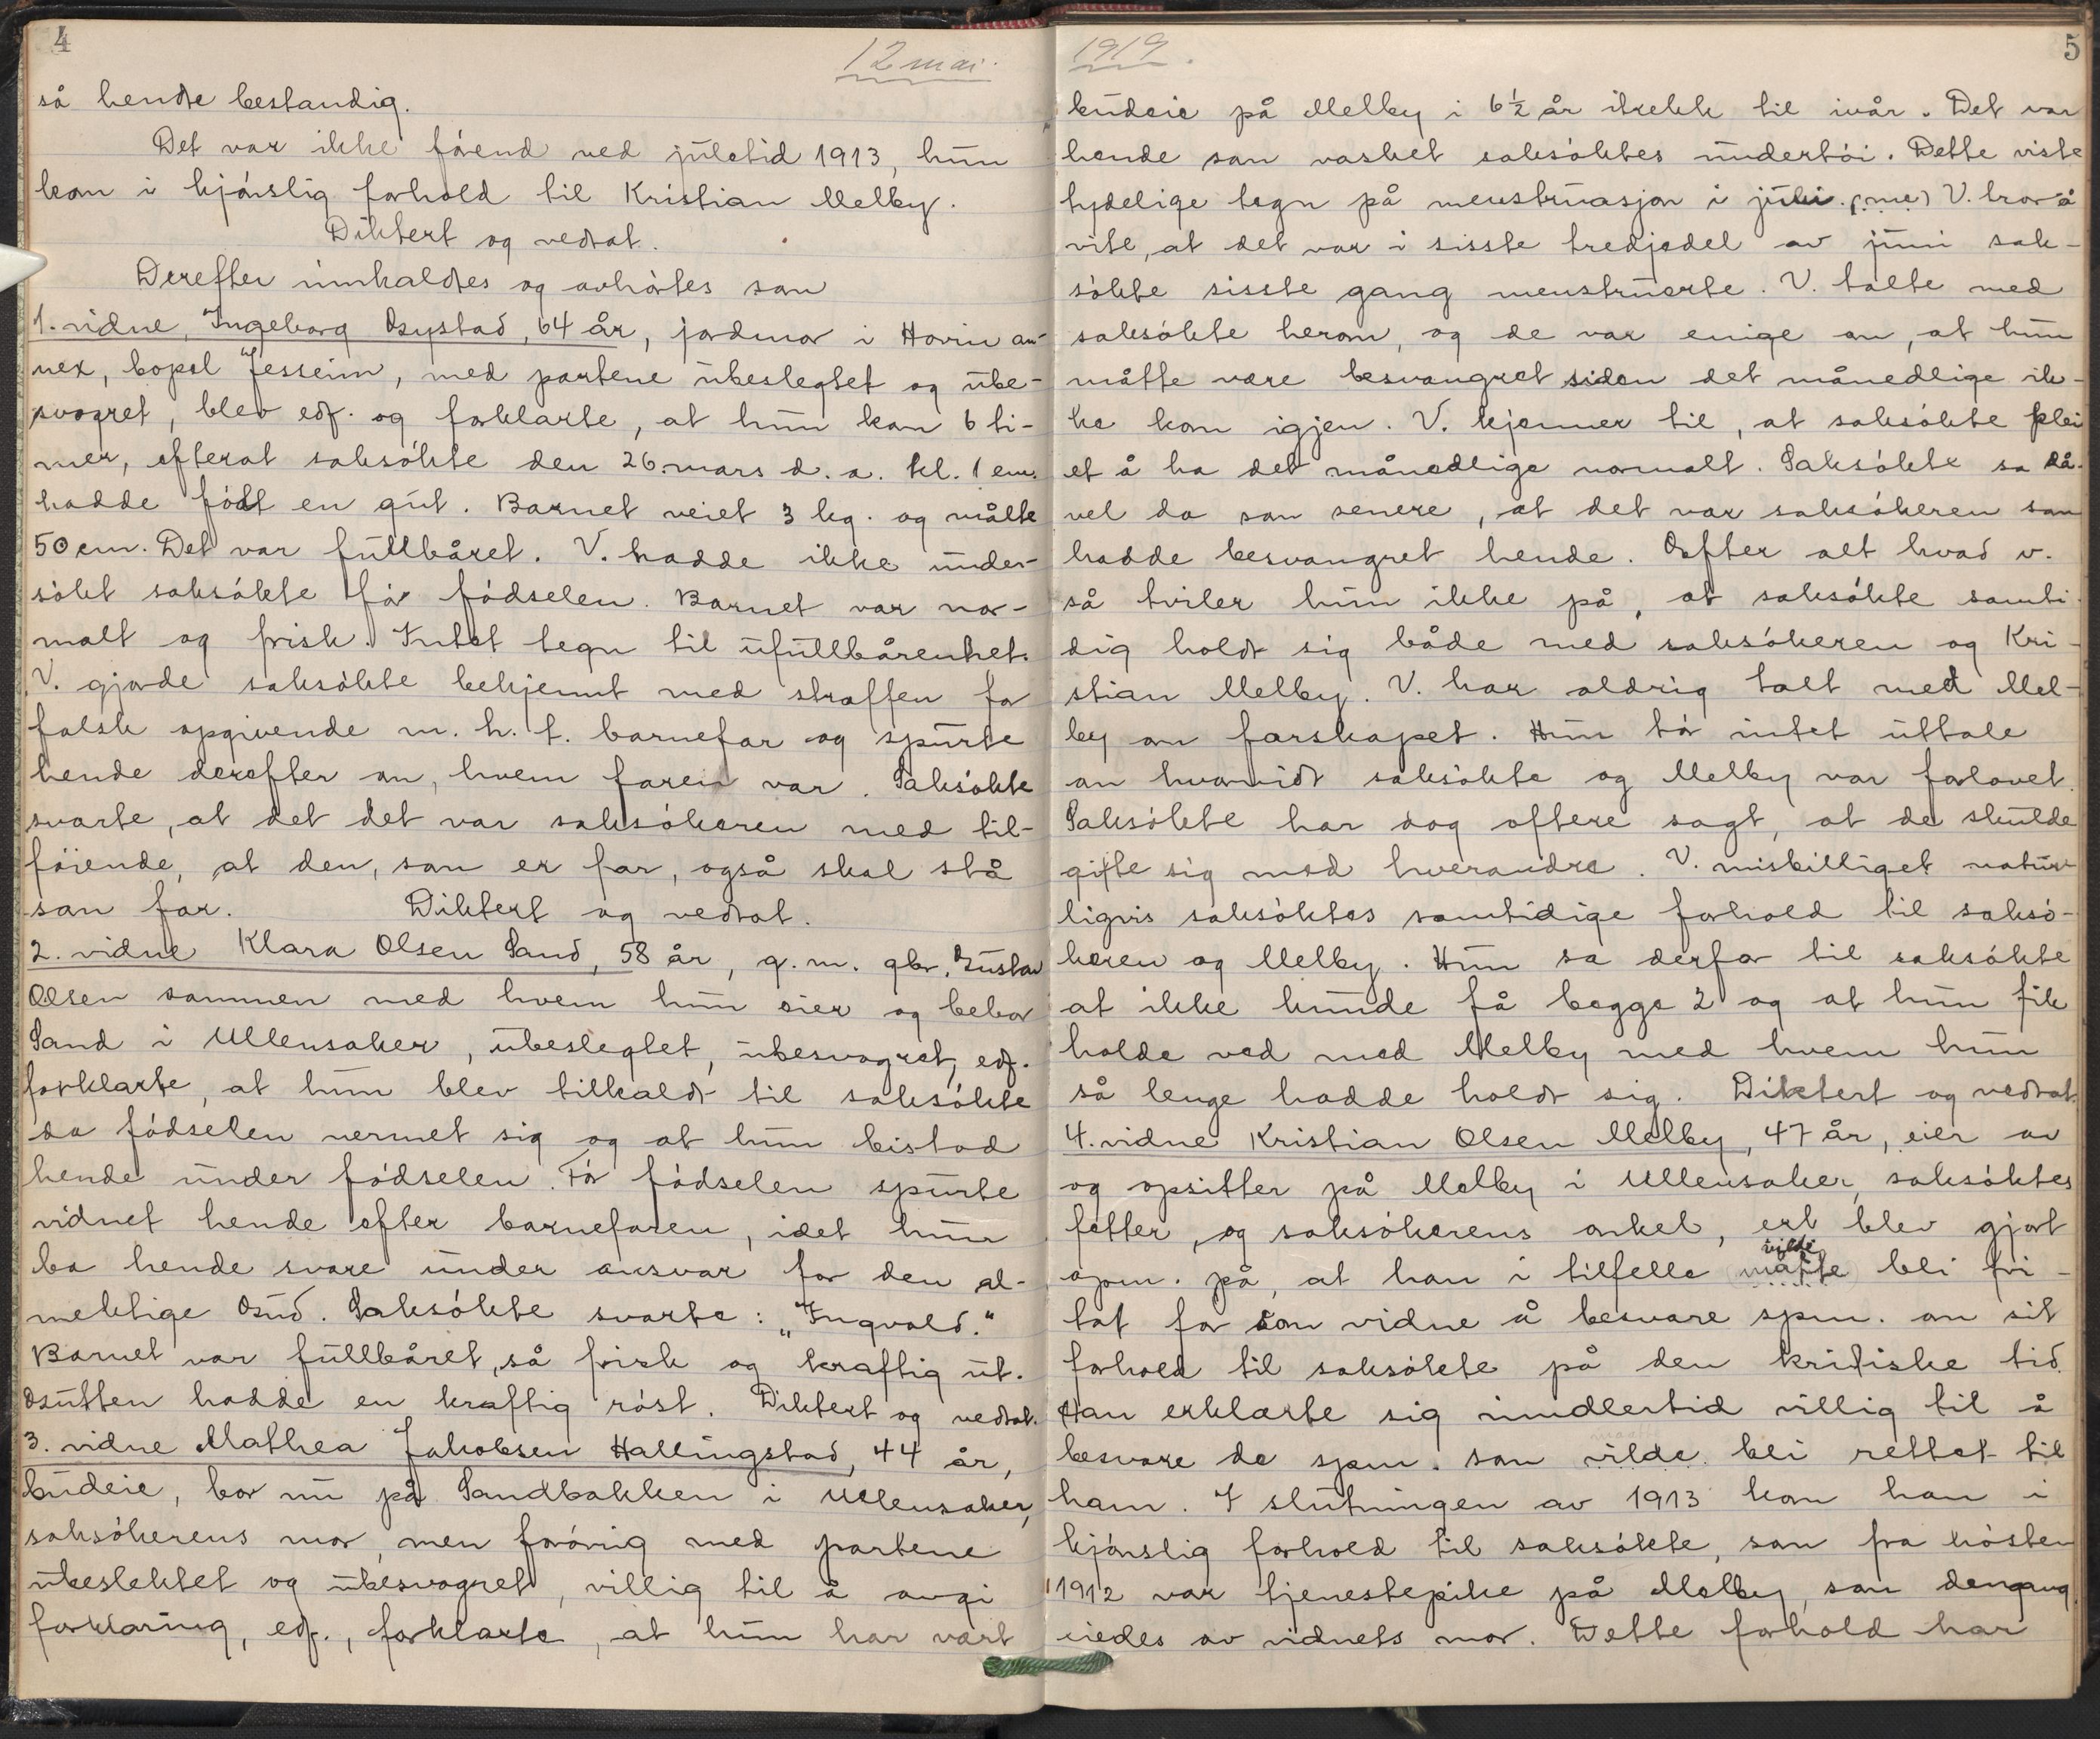 4
12 mai.
så hendte bestandig.
Det var ikke førend ved juletid 1913, hun
kom i kjønslig forhold til Kristian Melby.
Diktert og vedtat.
Derefter innkaldtes og avhørtes som
1. vidne, Ingeborg Gystad, 64 år, jordmor i Hovin an-
nex, bopel Jesseim, med partene ubeslegtet og ube-
svogret, blev edf. og forklarte, at hun kom 6 ti-
mer, efterat saksøkte den 26. mars d. a. kl. 1 em.
hadde født en gut. Barnet veiet 3 kg. og målte
50 cm. Det var fullbåret. V. hadde ikke under-
søkt saksøkte før fødselen. Barnet var nor-
malt og frisk. Intet tegn til ufullbårenhet.
V. gjorde saksøkte bekjennt med straffen for
falsk opgivende m. h. t. barnefar og spurte
hende derefter om, hvem faren var. Saksøkte
svarte, at det det var saksøkeren med til-
føiende, at den, som er far, også skal stå
som far. Diktert og vedtat.
2. vidne Klara Olsen Sand, 58 år, g. m. gbr. Gustav
Olsen sammen med hvem hun eier og bebor
Sand i Ullensaker, ubeslegtet, ubesvogret, edf.
forklarte, at hun blev tilkaldt til saksøkte
da fødselen nermet sig og at hun bistod
hende under fødselen. Før fødselen spurte
vidnet hende efter barnefaren, idet hun
ba hende svare under ansvar for den al-
mektige Gud. Saksøkte svarte: „Ingvald."
Barnet var fullbåret, så frisk og kraftig ut.
Gutten hadde en kraftig røst. Diktert og vedtat.
3. vidne Mathea Jakobsen Hallingstad, 44 år,
budeie, bor nu på Sandbakken i Ullensaker,
saksøkerens mor, men forøvrig med partene
ubeslektet og ubesvogret, villig til å avgi
forklaring, edf., forklarte, at hun har vært
1919.
5
budeie på Melby i 6½ år itrekk til ivår. Det var
hende som vasket saksøktes undertøi. Dette viste
tydelige tegn på menstruasjon i juli. (me) V. tror å
vite, at det var i sisste tredjedel av juni sak-
søkte sisste gang menstruerte. V. talte med
saksøkte herom, og de var enige om, at hun
måtte være besvangret siden det månedlige ik-
ke kom igjen. V. kjenner til, at saksøkte plei
et å ha det månedlige normalt. Saksøkte sa så-
vel da som senere, at det var saksøkeren som
hadde besvangret hende. Efter alt hvad v.
så tviler hun ikke på, at saksøkte samti-
dig holdt sig både med saksøkeren og Kri-
stian Melby. V. har aldrig talt med Mel-
by om farskapet. Hun tør intet uttale
om hvorvidt saksøkte og Melby var forlovet.
Saksøkte har dog oftere sagt, at de skulde
gifte sig med hverandre. V. misbilliget natur-
ligvis saksøktes samtidige forhold til saksø-
keren og Melby. Hun sa derfor til saksøkte
at ikke kunde få begge 2 og at hun fik
holde ved med Melby med hvem hun
så lenge hadde holdt sig. Diktert og vedtat.
4. vidne Kristian Olsen Melby, 47 år, eier av
og opsitter på Melby i Ullensaker, saksøktes
fetter, og saksøkerens onkel, erl. blev gjort
vilde
opm. på, at han i tilfelle måtte bli fri-
tat for som vidne å besvare spm. om sit
forhold til saksøkte på den kritiske tid.
Han erklærte sig imidlertid villig til å
maatte
besvare de spm. som vilde bli rettet til
ham. I slutningen av 1913 kom han i
kjønslig forhold til saksøkte, som fra høsten
1912 var tjenestepike på Melby, som dengang
eiedes av vidnets mor. Dette forhold har